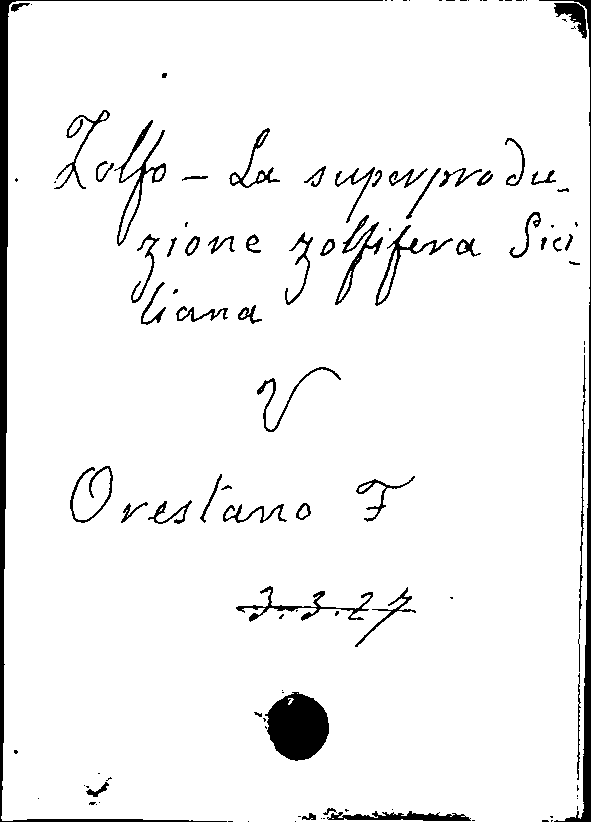 Zolfo - La superprodu-
zione zolfifera Sici-
liana
V
Orestano F
3.3.27